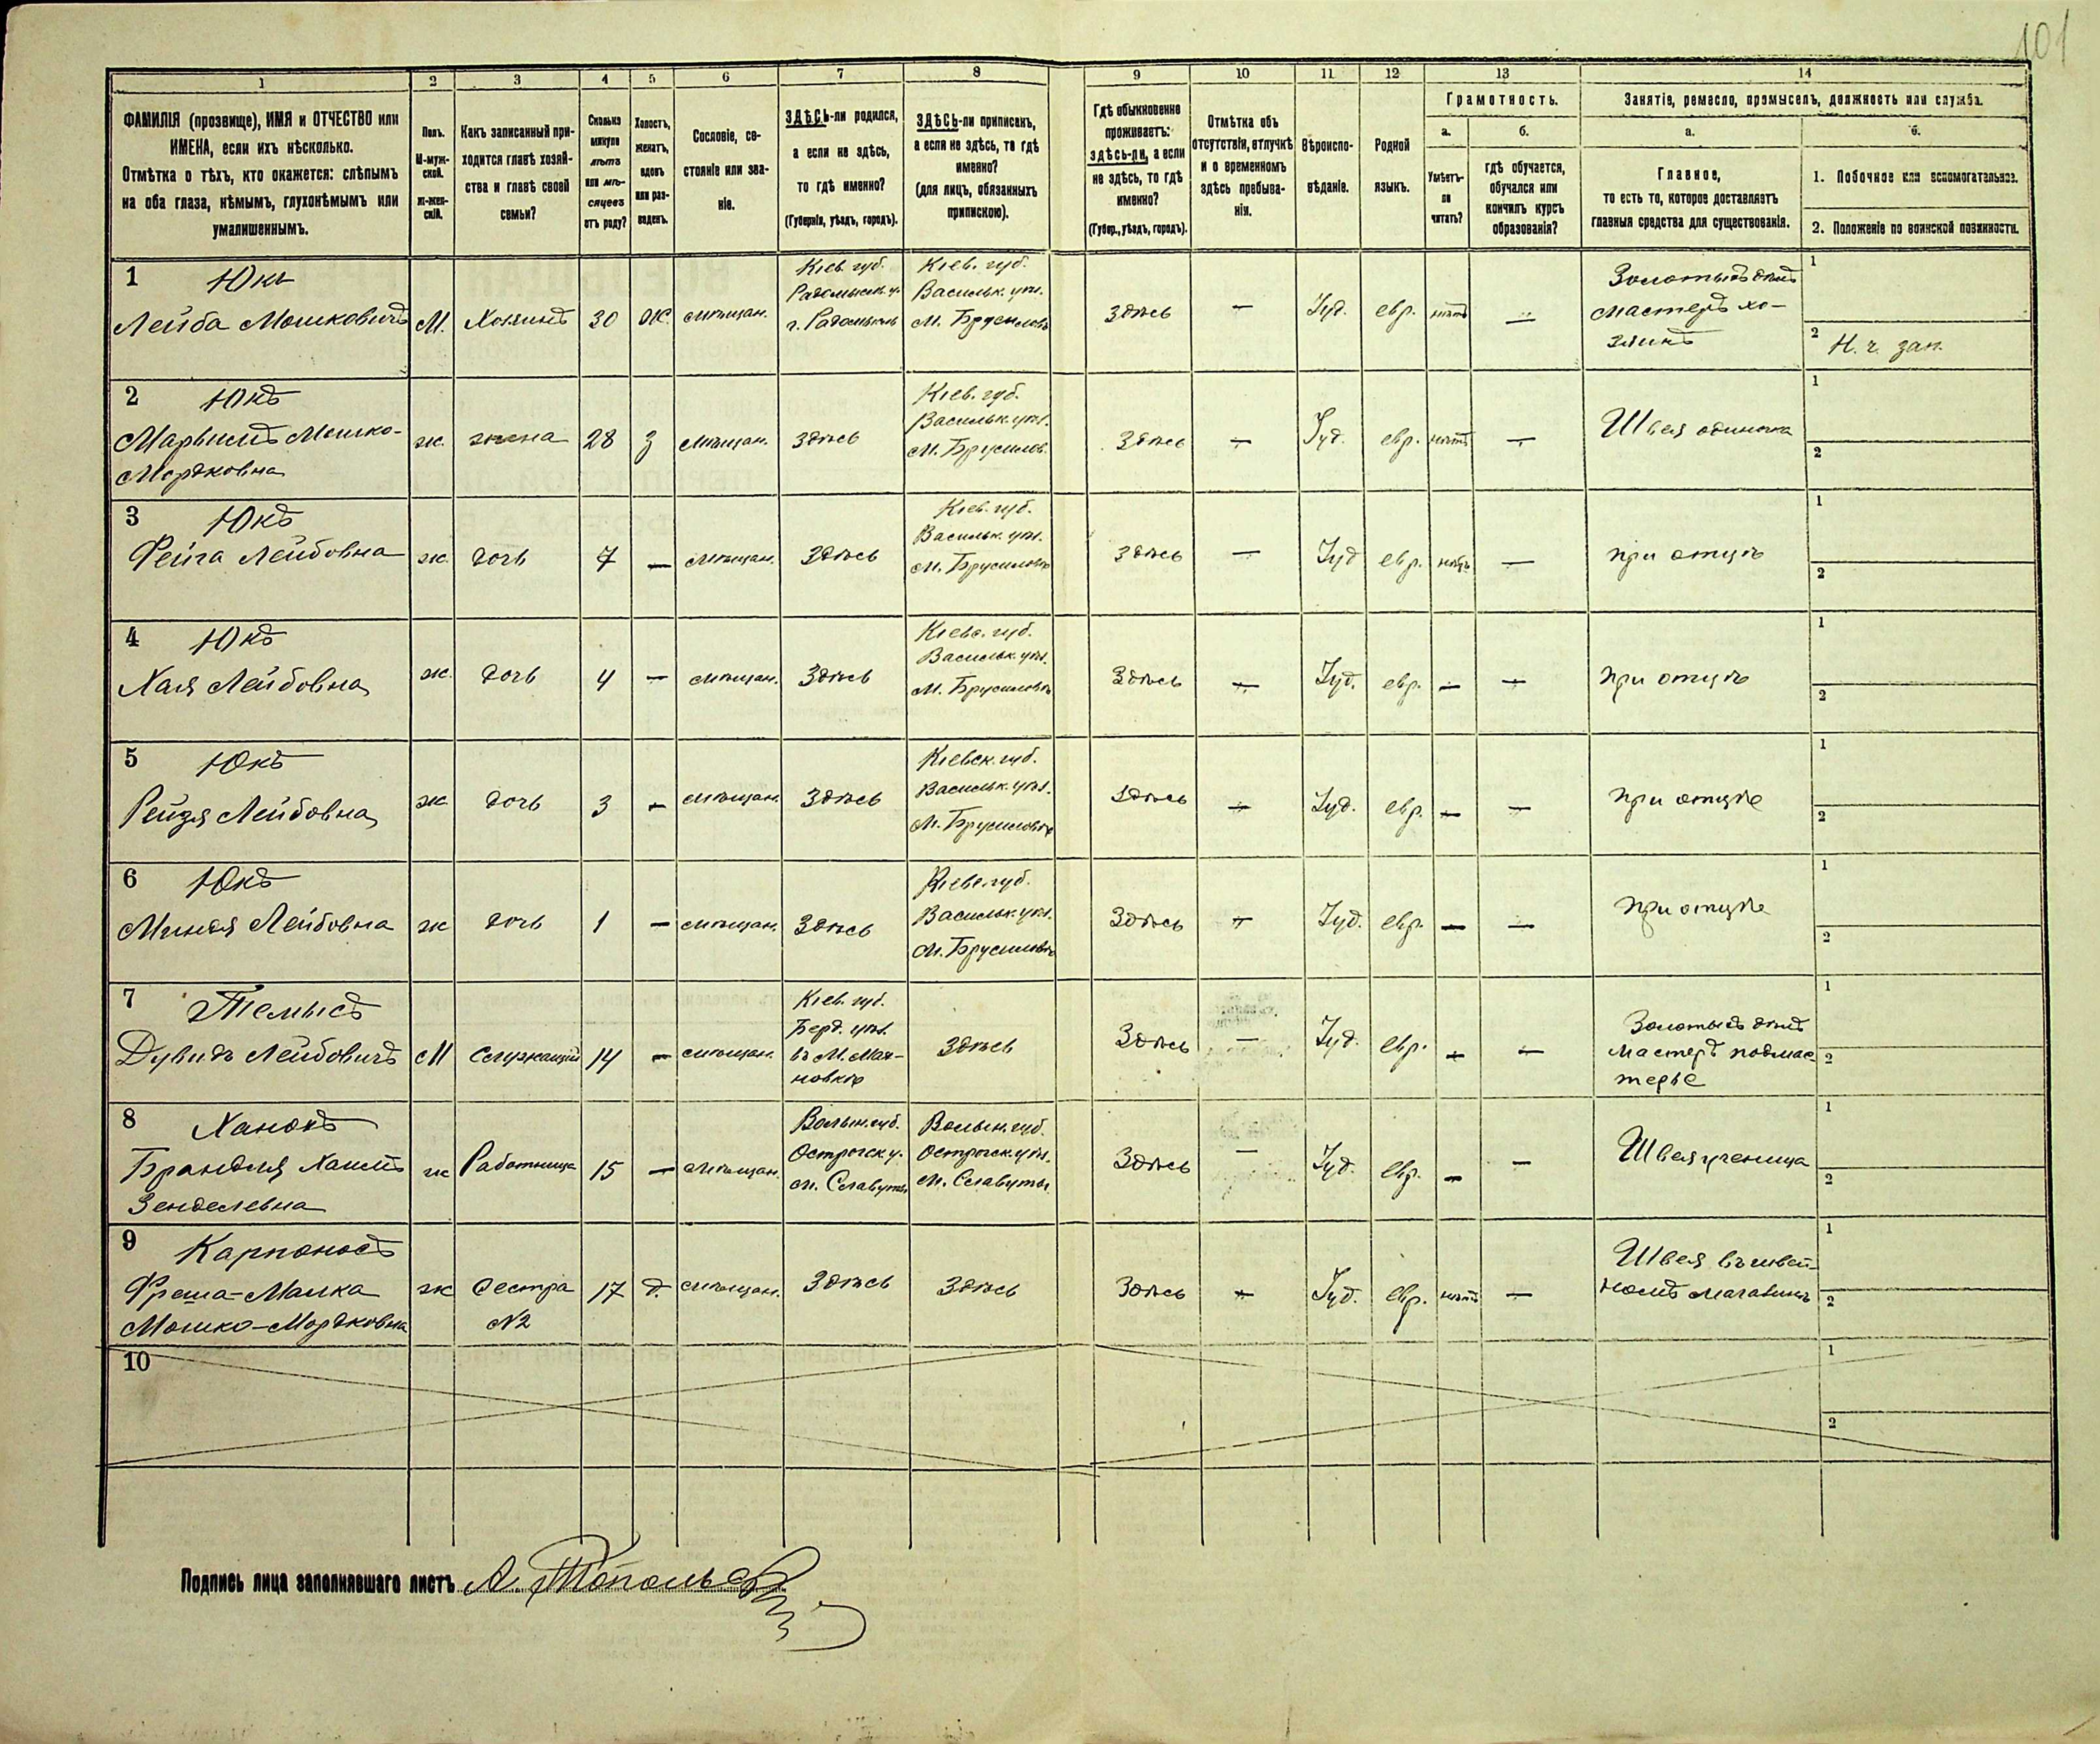 101
1
2
3
4
5
6
7
8
9
10
11
12
13
14
ФАМИЛІЯ (прозвище), ИМЯ и ОТЧЕСТВО или
ИМЕНА, если ихъ нѣсколько.
Отмѣтка о тѣхъ, кто окажется: слѣпымъ
на оба глаза, нѣмымъ, глухонѣмымъ или
умалишеннымъ.
Полъ.
М-муж-
ской.
Ж-жен-
скій.
Какъ записанный при-
ходится главѣ хозяй-
ства и главѣ своей
семьи?
Сколько
минуло
лѣтъ
или мѣ-
сяцевъ
отъ роду?
Холостъ,
женатъ,
вдовъ
или раз-
веденъ.
Сословіе, со-
стояніе или зва-
ніе.
ЗДѢСЬ-ли родился,
а если не здѣсь,
то гдѣ именно?
(Губернія, уѣздъ, городъ).
ЗДѢСЬ-ли приписанъ,
а если не здѣсь, то гдѣ
именно?
(для лицъ, обязанныхъ
припискою).
Гдѣ обыкновенно
проживаетъ:
здѣсь-ли, а если
не здѣсь, то гдѣ
именно?
(Губер., уѣздъ, городъ).
Отмѣтка объ
отсутствіи, отлучкѣ
и о временномъ
здѣсь пребыва-
ніи.
Вѣроиспо-
вѣданіе.
Родной
языкъ.
Грамотность.
а.
б.
Умѣетъ-
ли
читать?
гдѣ обучается,
обучался или
кончилъ курсъ
образованія?
Занятіе, ремесло, промыселъ, должность или служба.
а.
б.
Главное,
то есть то, которое доставляетъ
главныя средства для существованія.
1. Побочное или вспомогательное.
2. Положеніе по воинской повинности.
1
Юкъ
Лейба Мошковичъ
М.
Хозяинъ
30
Ж.
мѣщан.
Кіев. губ.
Радомысл. у.
г. Радомысль
Кіев. губ.
Васильк. уѣз.
м. Брусиловъ
Здѣсь
—
Іуд.
евр.
нѣтъ
—
Золотыхъ дѣлъ
мастеръ хо-
зяинъ
1
2
Н. ч. зап.
2
Юкъ
Марьимъ Мошко-
Мордковна
ж.
жена
28
З
мѣщан.
Здѣсь
Кіев. губ.
Васильк. уѣз.
м. Брусилов.
Здѣсь
—
Іуд.
евр.
нѣтъ
—
Швея одиночка
1
2
3
Юкъ
Фейга Лейбовна
ж.
дочь
7
—
мѣщан.
Здѣсь
Кіев. губ.
Васильк. уѣз.
м. Брусиловъ
Здѣсь
—
Іуд
евр.
нѣтъ
—
при отцѣ
1
2
4
Юкъ
Хая Лейбовна
ж.
дочь
4
—
мѣщан.
Здѣсь
Кіевс. губ.
Васильк. уѣз.
м. Брусиловъ
Здѣсь
—
Іуд.
евр.
—
—
при отцѣ
1
2
5
Юкъ
Рейзя Лейбовна
ж.
дочь
3
—
мѣщан.
Здѣсь
Кіевск. губ.
Васильк. уѣз.
м. Брусиловъ
Здѣсь
—
Іуд.
евр.
—
—
при отцѣ
1
2
6
Юкъ
Миндя Лейбовна
ж
дочь
1
—
мѣщан.
Здѣсь
Кіевс. губ.
Васильк. уѣз.
м. Брусиловъ
Здѣсь
—
Іуд.
евр.
—
—
при отцѣ
1
2
7
Темысъ
Дувидъ Лейбовичъ
М
Служащій
14
—
мѣщан.
Кіев. губ.
Берд. уѣз.
въ М. Мах-
новкѣ
Здѣсь
Здѣсь
—
Іуд.
евр.
—
—
Золотыхъ дѣлъ
мастеръ подмас-
терье
1
2
8
Ханокъ
Брандля Хаимъ
Зенделевна
ж
Работница
15
—
мѣщан.
Волын. губ.
Острогск. у.
м. Славуты
Волын. губ.
Острогск. уѣз.
м. Славуты
Здѣсь
—
Іуд.
евр.
—
—
Швея ученица
1
2
9
Карпоносъ
Фреша-Малка
Мошко-Мордковна
ж
Сестра
№2
17
д.
мѣщан.
Здѣсь
Здѣсь
Здѣсь
—
Іуд.
евр.
нѣтъ
—
Швея въ швей-
номъ магазинѣ
1
2
10
1
2
Подпись лица заполнявшаго листъ А. Топольск